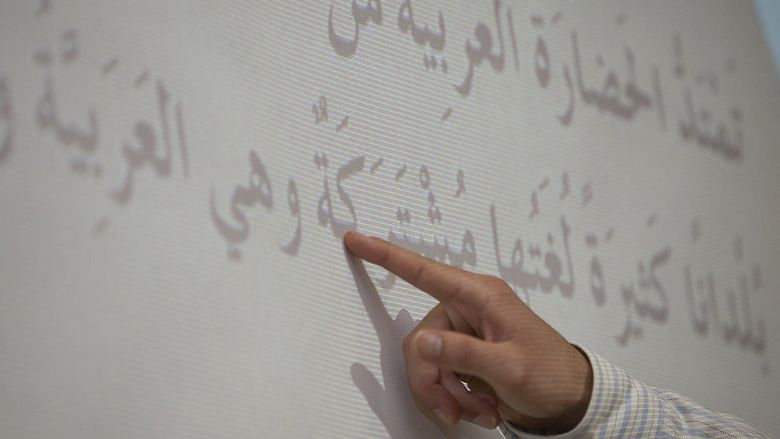 تَمْتَدُّ الحَضارَةُ العربيةُ مِن
بُلْداناً كَثيرَةً لُغَتُها مُشْتَرَكَةٌ وهي العَرَبِيَّةُ